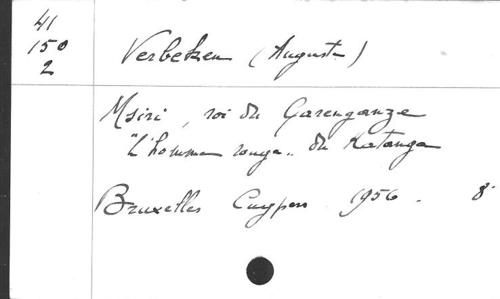 41
150
2
Verbeken (Auguste)
Msiri, roi du Garenganze
"L'homme rouge" du Katanga
Bruxelles Cuypers 1956. 8°